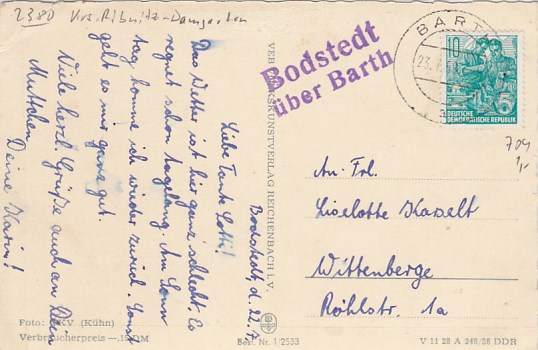 2380 Krs. Ribnitz-Damgarten
Bodstedt, d. 22.7.
Liebe Tante Lotti!
Das Wetter ist hier ganz schlecht. Es
regnet schon tagelang. Am Sonn
tag komme ich wieder zurück. Sonst
geht es mir ganz gut.
Viele herzl. Grüße auch an Dein
Muttchen
Deine Karin!
Foto: VKV (Kühn)
Verbraucherpreis —,15 DM
VEB VOLKSKUNSTVERLAG REICHENBACH I. V.
Best. Nr. 1/2533
Bodstedt
über Barth
BARTH
10
DEUTSCHE
DEMOKRATISCHE REPUBLIK
704
1,-
An Frl.
Liselotte Kaselt
Wittenberge
Röhlstr. 1a
V 11 28 A 248/58 DDR